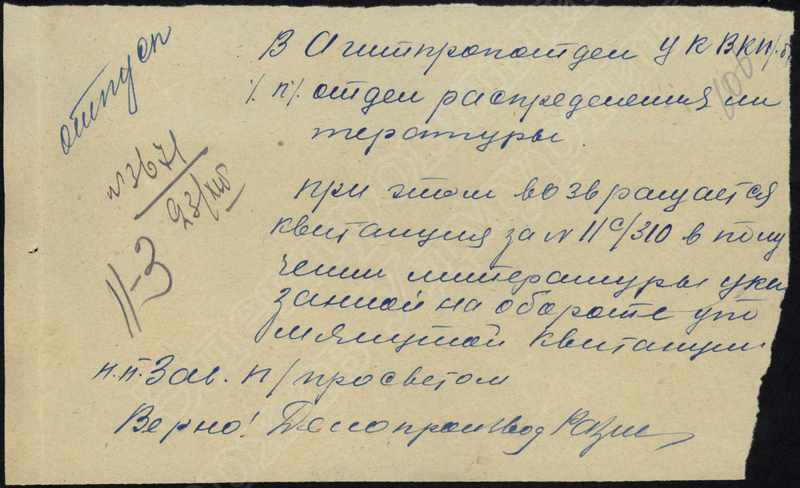 отпуск
В Агитпропотдел УК ВКП/б/
100
% п% отдел распределения ли
тературы.
№3671
23/XII
11-3
при этом возвращается
квитанция за № 11с/310 в полу
чении литературы ука
занной на обороте упо
мянутой квитанции
п.п. Зав. п/просветом
Верно! Делопроизвод